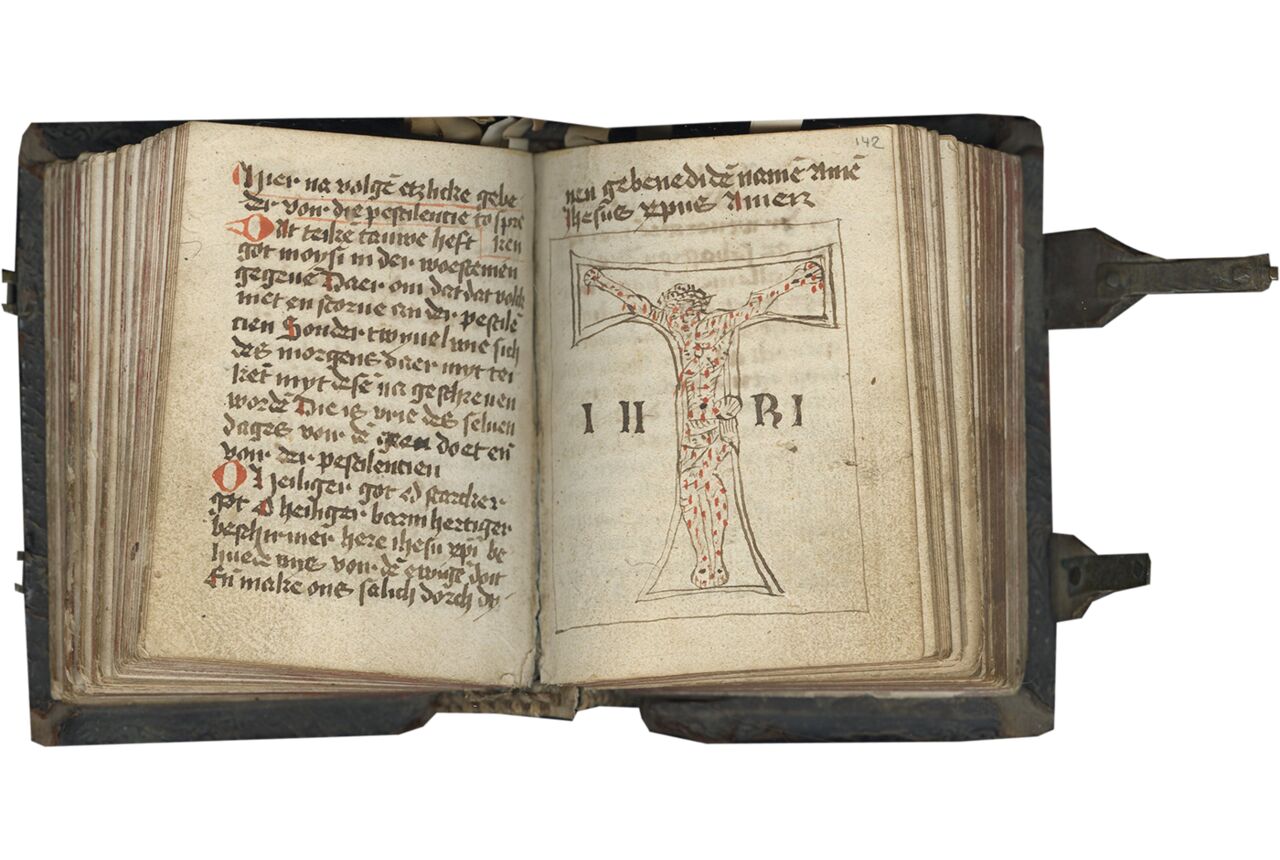 Hier na volgē etzlicke gebe
der von die pestilentie to spre
ken
Dat teikē tauwe heft
got moysi in der woestenien
gegeuē Daer om dat dat volck
niet en storue an der pestilē
tien Sonder twyuel wie sich
des morgens daer myt tei
kēt myt desē na geschreuen
wordē Die is vrie des seluen
dages von dē doet en̄
von der pestilentien
O Heiliger got O starcker
got O heiliger barmhertiger
beschirmer here ihesu xp̄i be
huede uns von dē ewigē doit
En̄ make ons salich dorch dy
142
nen gebenedidē namē Amē
Ihesus xpus Amen
I II RI